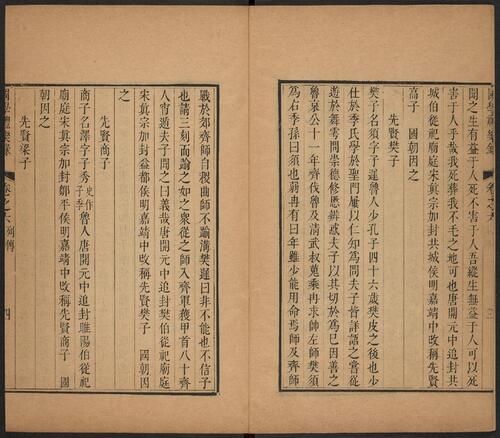 聞之生有益于人死不害于人吾縱生無益于人可以死
害于人乎哉我死葬我不毛之地可也唐開元中追封共
城伯從祀廟庭宋真宗加封共城侯明嘉靖中改稱先賢
高子　國朝因之
先賢樊子
樊子名須字子遲魯人少孔子四十六歲樊皮之後也少
仕於季氏學於聖門屢以仁知為問夫子皆詳語之嘗從
遊於舞雩問崇德修慝辨惑夫子以其切於為己因善之
魯哀公十一年齊伐魯及清武叔蒐乘冉求帥左師樊須
為右季孫曰須也弱冉有曰年雖少能用命焉師及齊師
國學禮樂錄　卷之六
戰於郊齊師自稷曲師不踰溝樊遲曰非不能也不信子
也請三刻而踰之如之衆從之師入齊軍獲甲首八十齊
人宵遁夫子聞之曰義哉唐開元中追封樊伯從祀廟庭
宋真宗加封益都侯明嘉靖中改稱先賢樊子　國朝因
之
先賢商子
商子名澤字子秀史作子季魯人唐開元中追封睢陽伯從祀
廟庭宋真宗加封鄒平侯明嘉靖中改稱先賢商子　國
朝因之
先賢梁子
國學禮樂錄　卷之六　列傳　四